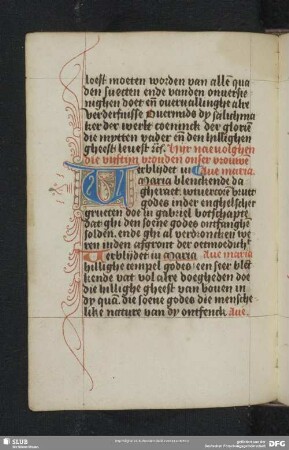 loest moeten worden van allē qua
den suecten ende vanden onverse
nighen doet en̄ overvallinghe alre
verderfenisse Overmids dy salichma
ker der werlt coeninck der glorie
die mytten vader en̄ den hillighen
gheest levest Hijr naevolghen
die vijftijn vrouden onser vrouwe
Verblijdet u Ave maria.
Maria blenckende da
gheraet. utvercoer bruut
godes in der enghelscher
grueten doe u gabriel botschapte
dat ghi den soene godes ontfanghē
solden. ende ghi al verdroncken we
ren in den afgront der oetmoedich
Verblijdet u Maria Ave maria
hillighe tempel godes. een seer blēc
kende vat vol alre doegheden doe
die hillighe gheest van boven in
dy qua. die soene godes die mensche
like nature van dy ontfenck. Ave.
SLUB
DFG